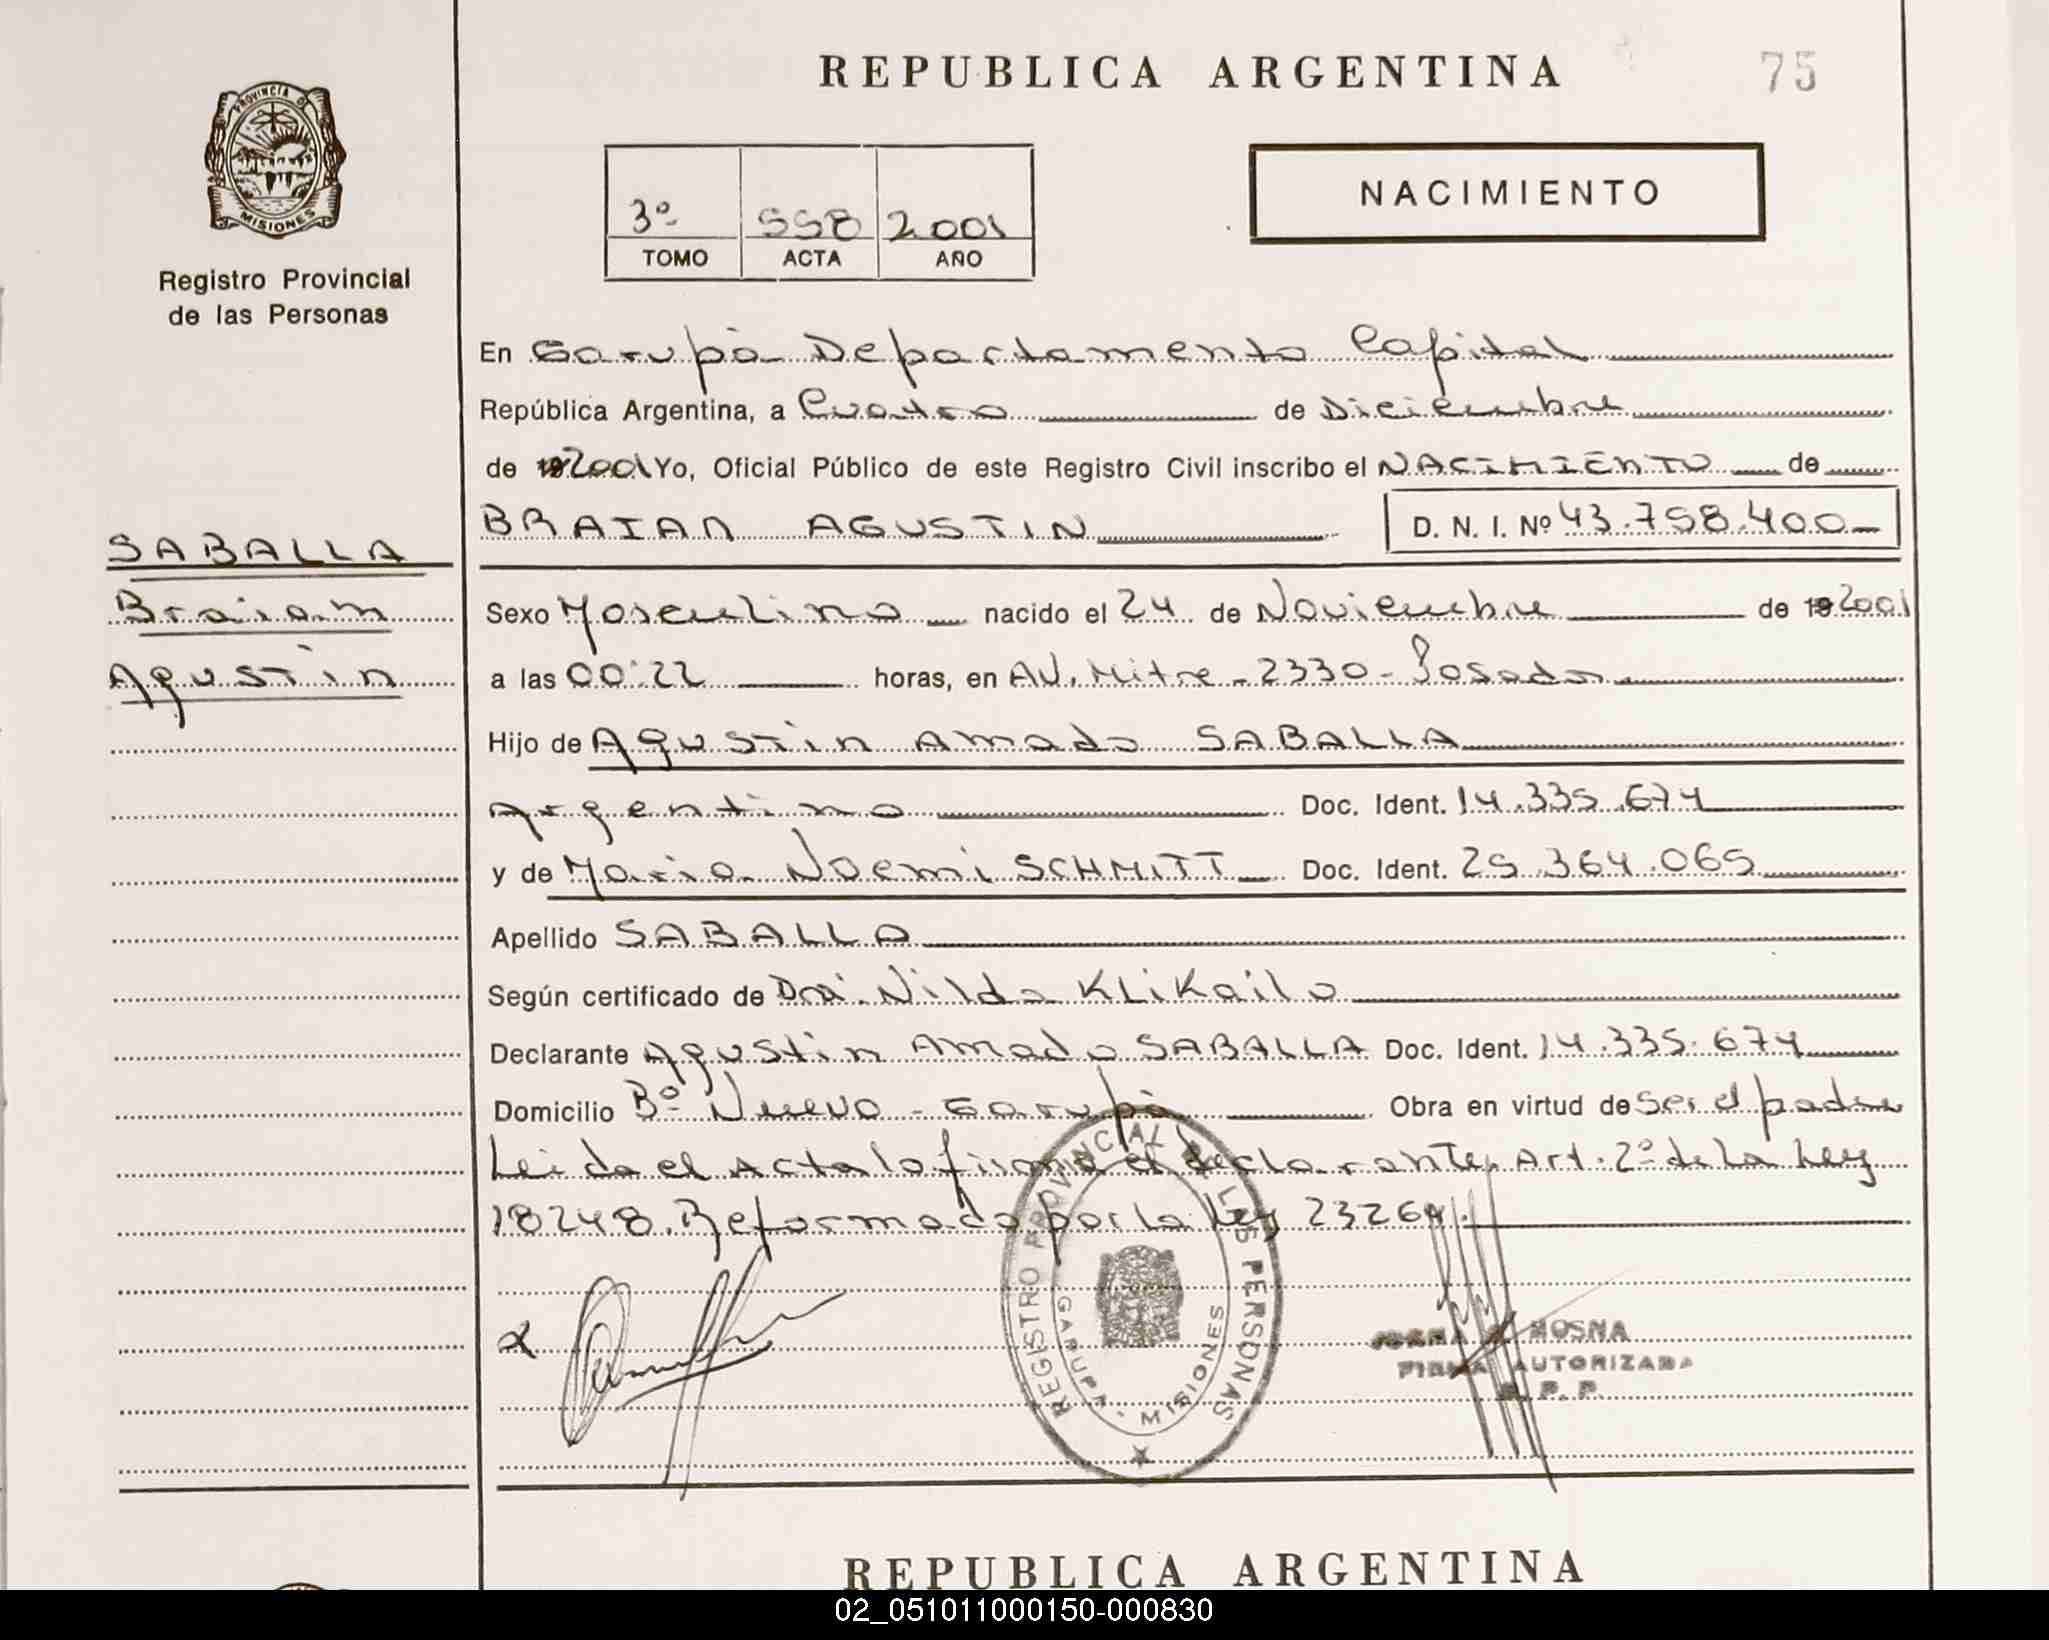 REPUBLICA ARGENTINA
75
PROVINCIA DE
MISIONES
Registro Provincial
de las Personas
NACIMIENTO
3º 558 2001
TOMO ACTA AÑO
En Garupá Departamento Capital
República Argentina, a Cuatro de Diciembre
de 192001 Yo, Oficial Público de este Registro Civil inscribo el NACIMIENTO de
BRAIAN AGUSTIN D. N. I. Nº 43.758.400
SABALLA
Braian
Agustín
Sexo Masculino nacido el 24 de Noviembre de 192001
a las 00:22 horas, en AV. Mitre - 2330 - Posadas
Hijo de Agustín Amado SABALLA
Argentino Doc. Ident. 14.335.674
y de Maria Noemi SCHMITT Doc. Ident. 25.364.065
Apellido SABALLA
Según certificado de Dra. Nilda KLiKailo
Declarante Agustin Amado SABALLA Doc. Ident. 14.335.674
Domicilio Bº Nuevo - Garupá Obra en virtud de ser el padre
Leida el Acta la firma el declarante, Art. 2º de la Ley
18248. Reformado por la Ley 23264.
REGISTRO PROVINCIAL DE LAS PERSONAS
GARUPA - MISIONES
MOSNA
FIRMA AUTORIZADA
R. P. P.
REPUBLICA ARGENTINA
02_051011000150-000830